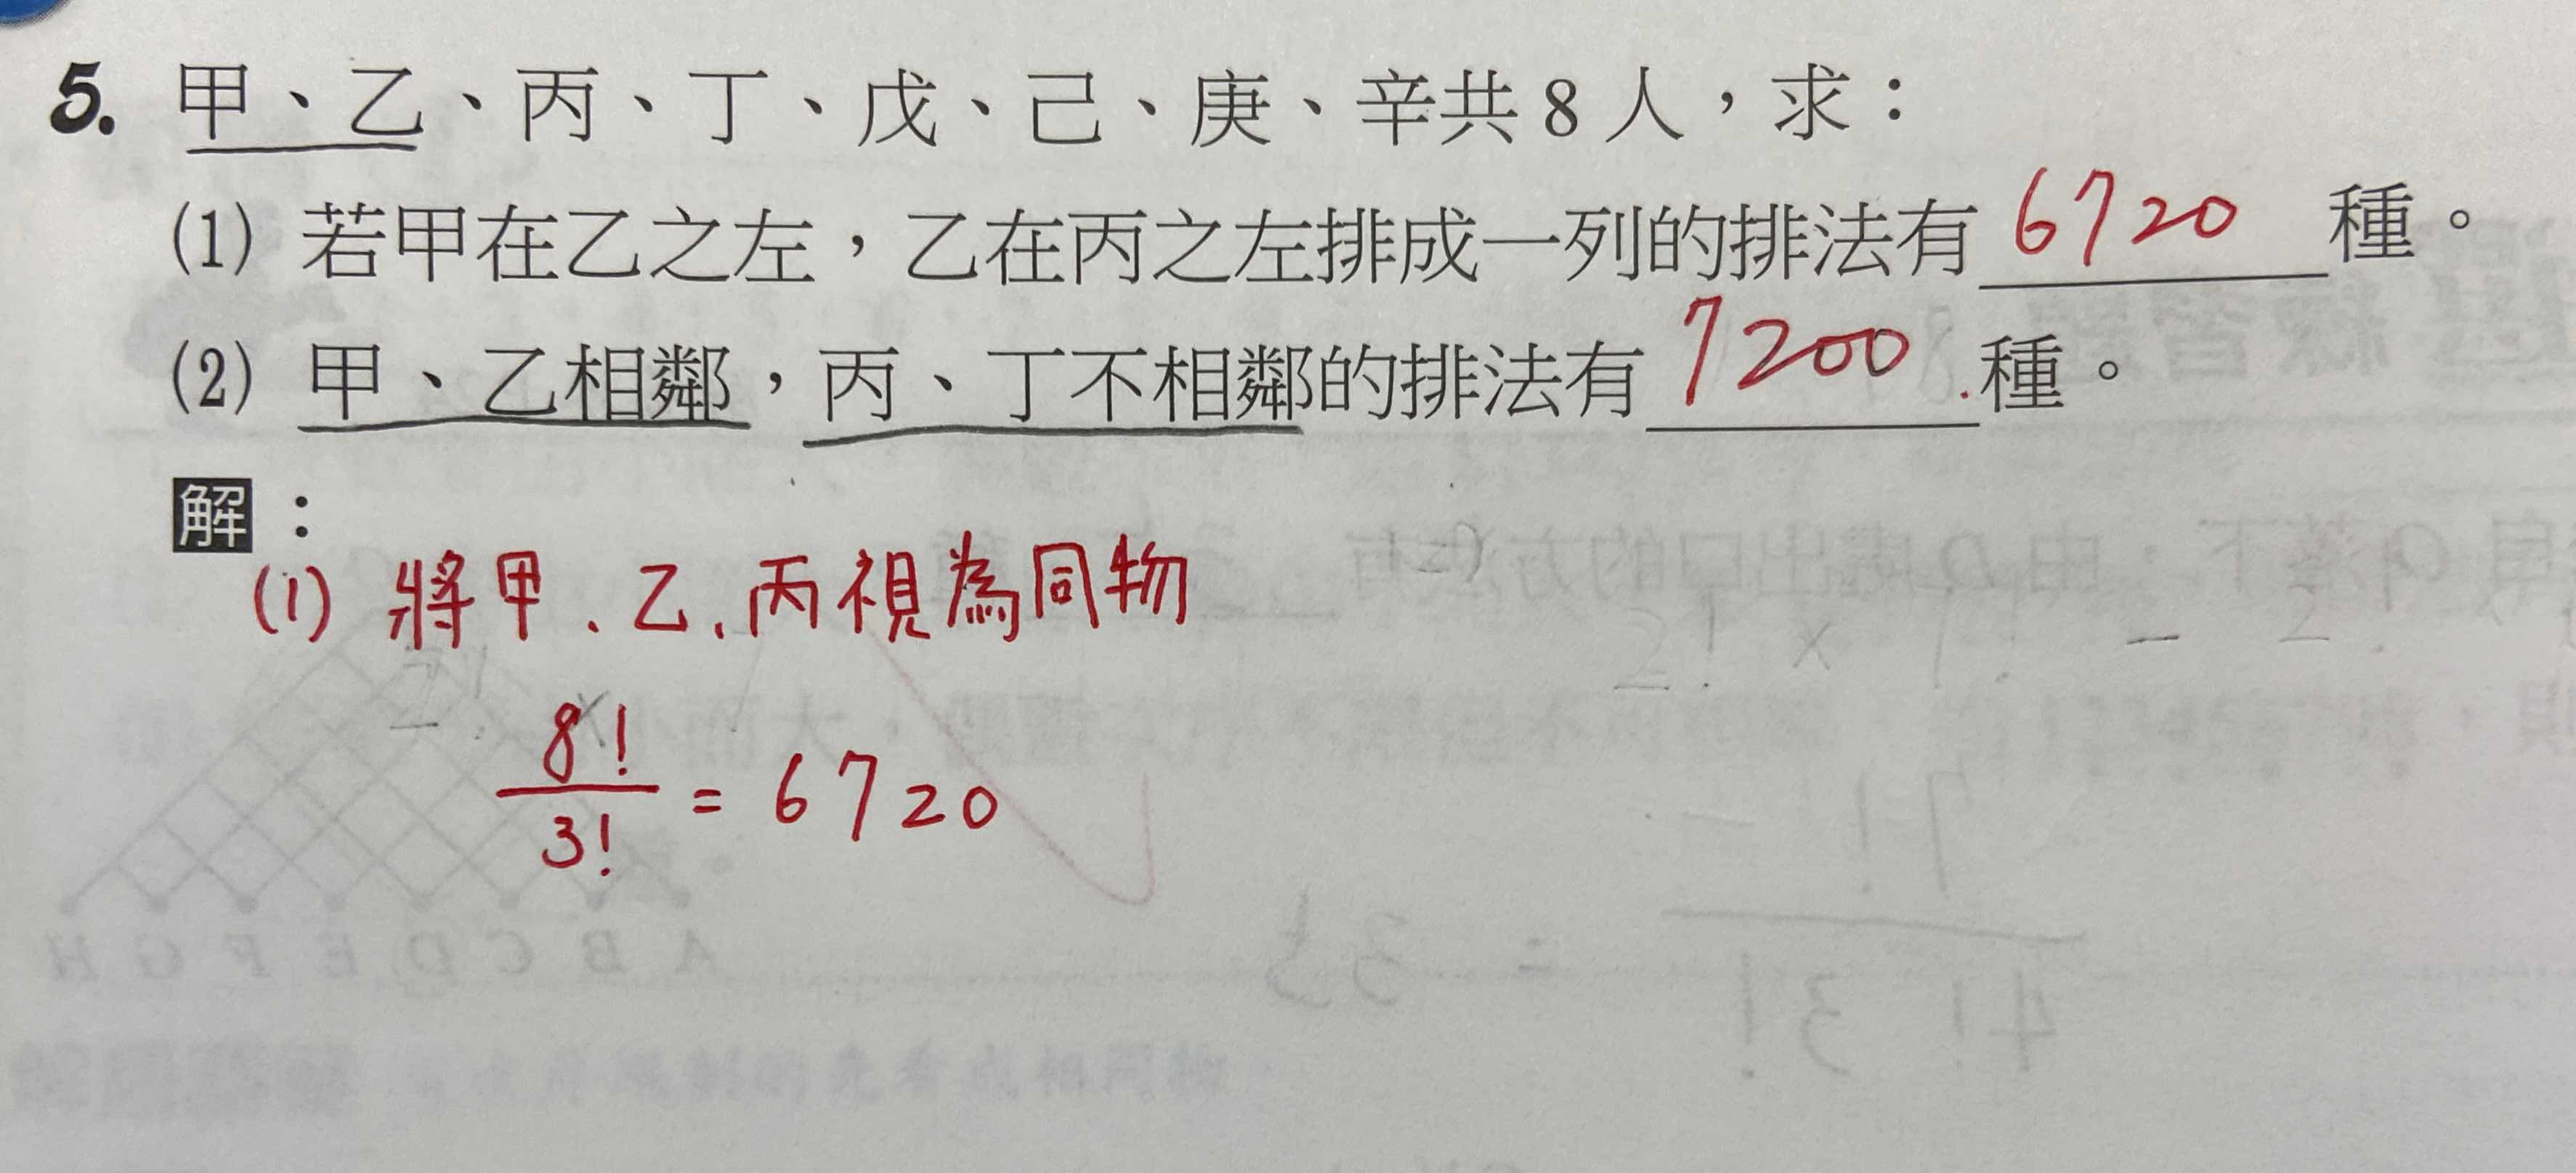 5. 甲、乙、丙、丁、戊、己、庚、辛共 8 人，求：
(1) 若甲在乙之左，乙在丙之左排成一列的排法有 6720 種。
(2) 甲、乙相鄰，丙、丁不相鄰的排法有 7200 種。
解：
(1) 將甲、乙、丙視為同物
8!/3! = 6720